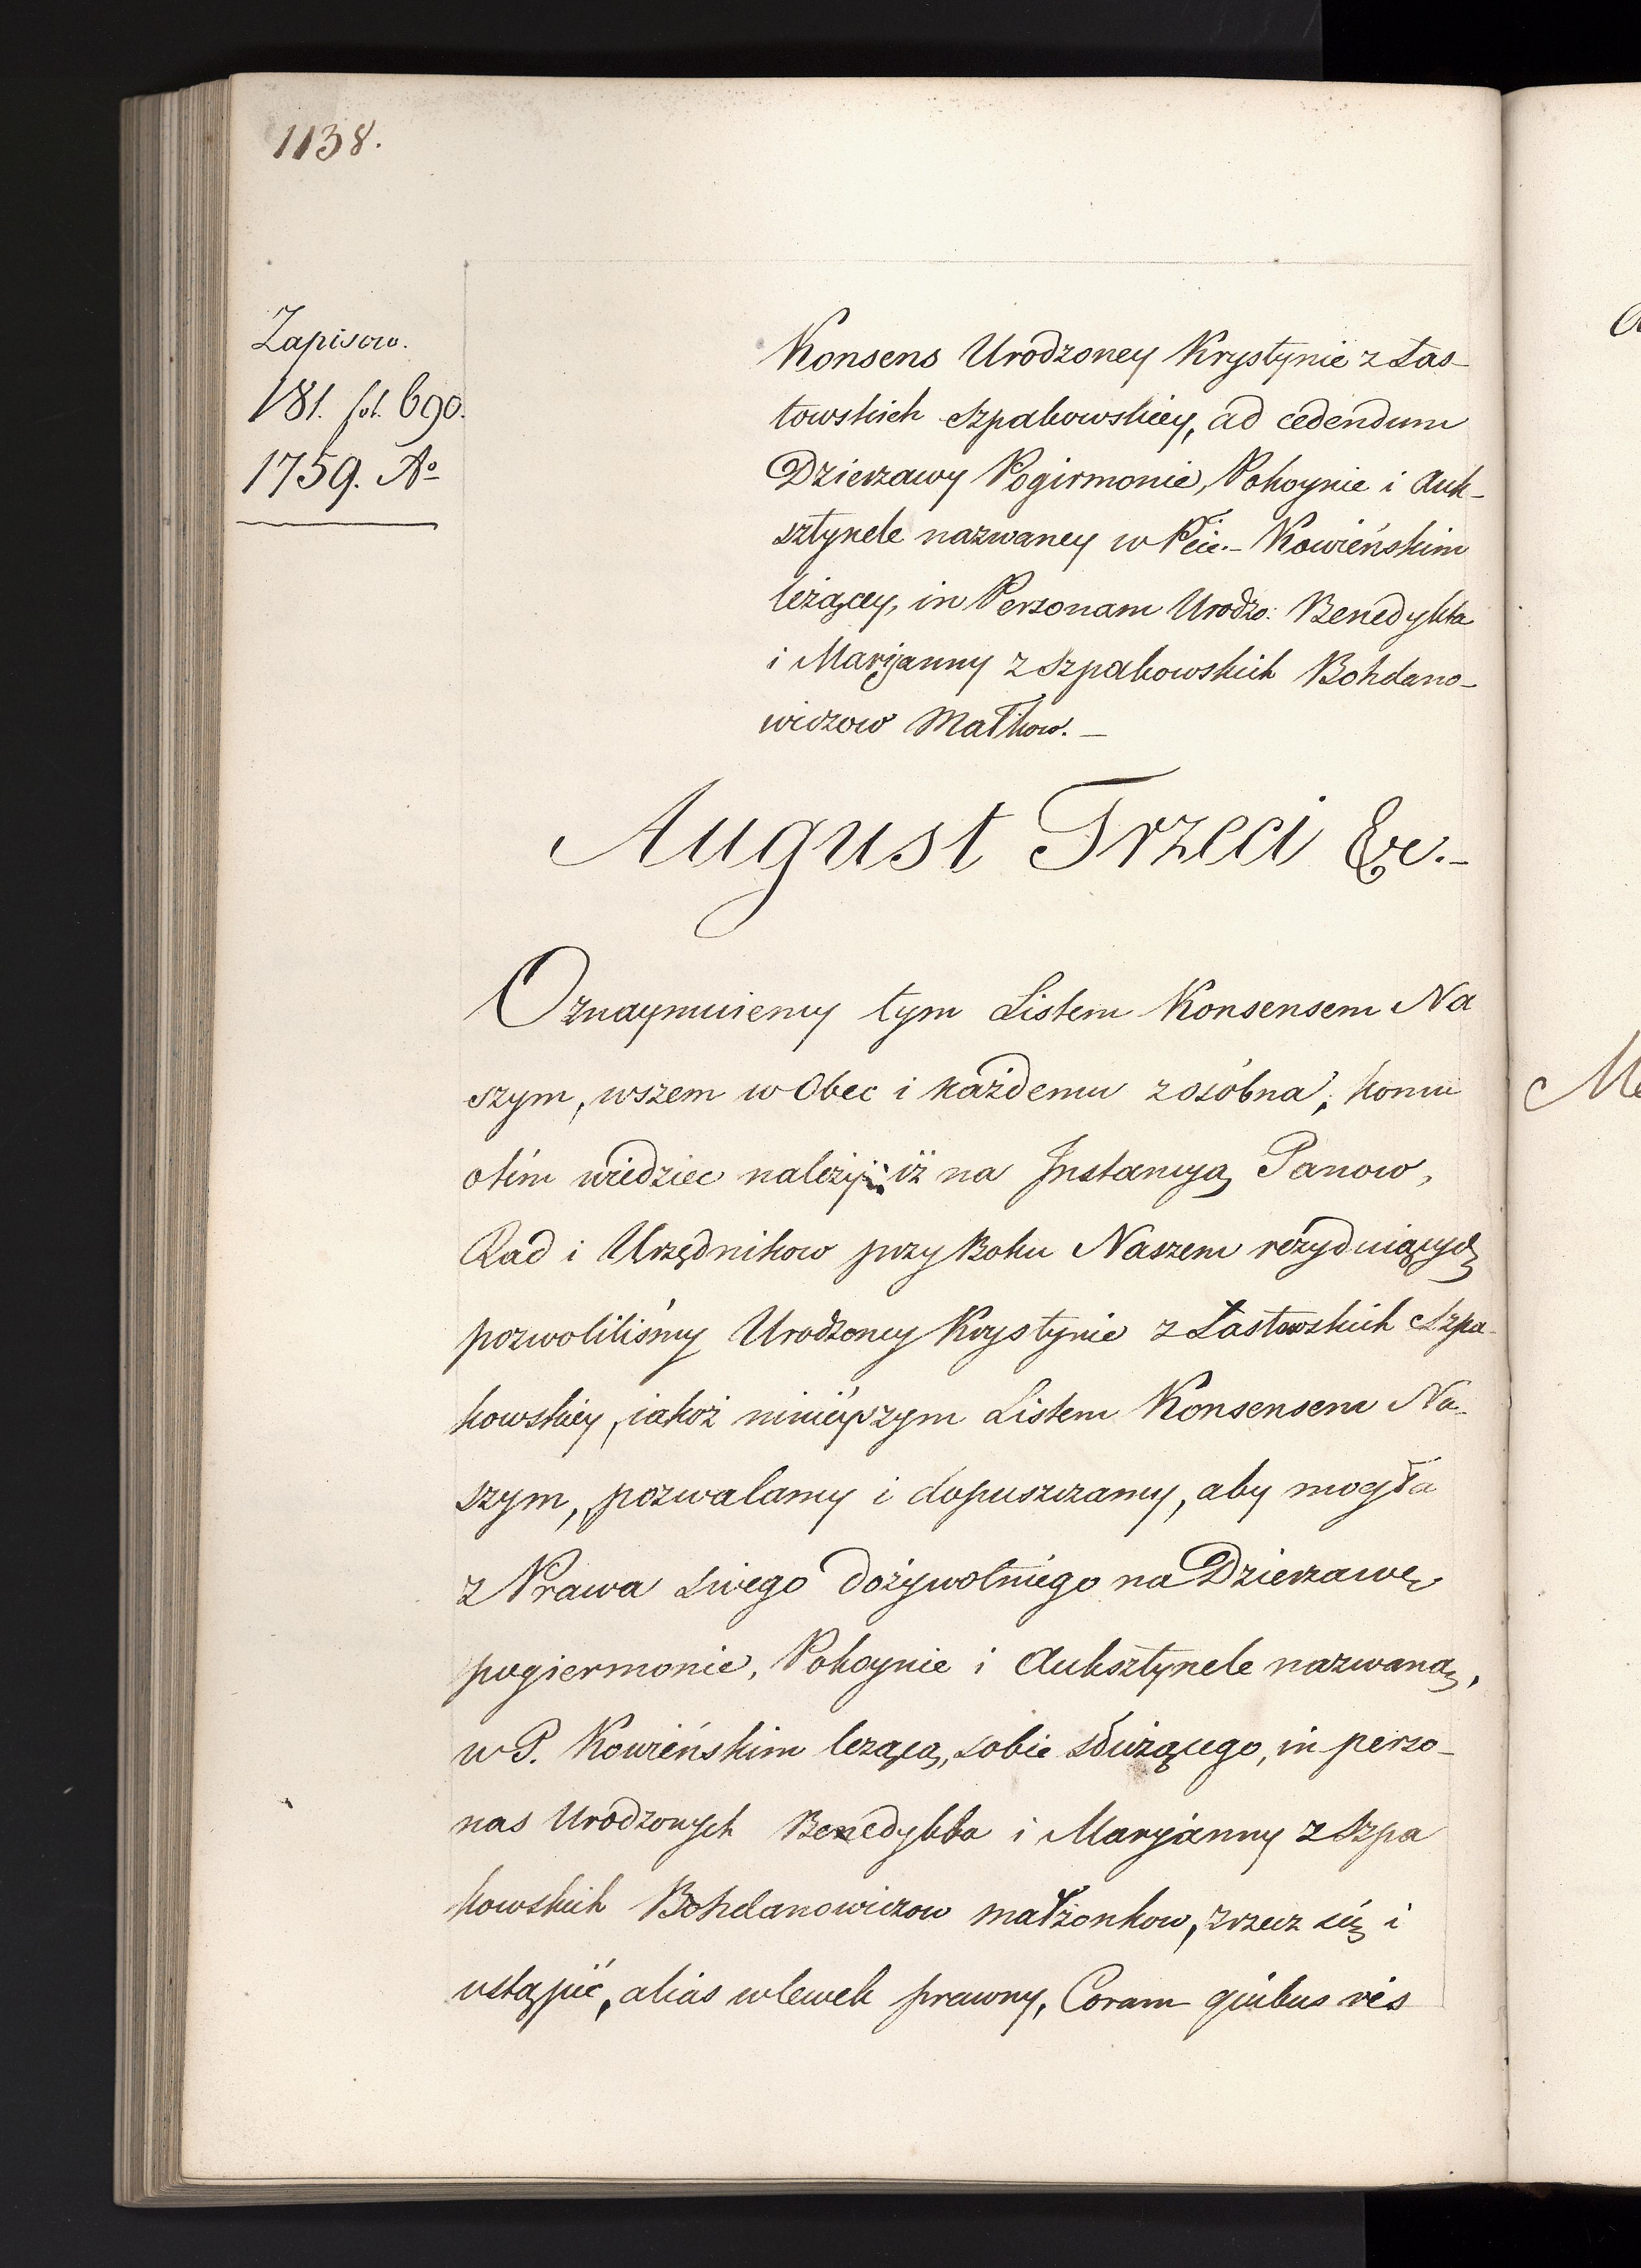 1138.
Zapisow.
181. fol. 690.
1759. Ao
Konsens Urodzoney Krystynie z Łas-
towskich Szpakowskiey, ad cedendum
Dzierzawy Pogirmonie, Pokoynie i Auk-
sztynele nazwaney w Pcie.- Kowieńskim
leżącey, in Personam Urodzo: Benedykta
i Maryanny z Szpakowskich Bohdano-
wiczow Małkow.-
August Trzeci &c.-
Oznaymuiemy tym Listem Konsensem Na
szym, wszem w Obec i każdemu z osóbna, komu
otim wiedziec należy, iż na Instancyą Panow,
Rad i Urzędnikow przy Boku Naszem rezyduiących
pozwoliliśmy Urodzoney Krystynie z Łastowskich Szpa-
kowskiey, iakoż ninieyszym Listem Konsensem Na-
szym, pozwalamy i dopuszczamy, aby mogła
z Prawa swego dożywotniego na Dzierzawę
pogiermonie, Pokoynie i Auksztynele nazwaną,
w P. Kowieńskim lezącą, sobie służącego, in perso-
nas Urodzonych Benedykta i Maryanny z Szpa
kowskich Bohdanowiczow małżonkow, zrzecz się i
ustąpić, alias wlewek prawny, Coram quibus vis